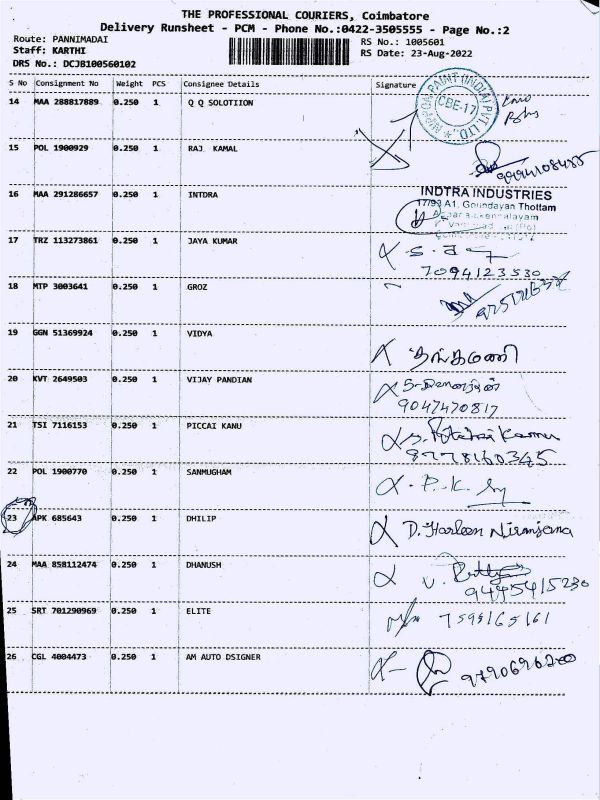 THE PROFESSIONAL COURIERS, Coimbatore
Delivery Runsheet - PCM - Phone No.:0422-3505555 - Page No.:2
Route: PANNIMADAI
RS No.: 1005601
Staff: KARTHI
RS Date: 23-Aug-2022
DRS No.: DCJB100560102
S No Consignment No Weight PCS Consignee Details Signature
14 MAA 288817889 0.250 1 Q Q SOLOTIION
NIPPON PAINT (INDIA) PVT. LTD.
CBE-17
15 POL 1900929 0.250 1 RAJ KAMAL
9994108455
16 MAA 291286657 0.250 1 INTDRA
INDTRA INDUSTRIES
17/93 A1, Goundayan Thottam
17 TRZ 113273861 0.250 1 JAYA KUMAR
7094123530
18 MTP 3003641 0.250 1 GROZ
19 GGN 51369924 0.250 1 VIDYA
தங்கமணி
20 KVT 2649503 0.250 1 VIJAY PANDIAN
9047470817
21 TSI 7116153 0.250 1 PICCAI KANU
8778160345
22 POL 1900770 0.250 1 SANMUGHAM
P.K.
23 APK 685643 0.250 1 DHILIP
D. Harleen Niranjana
24 MAA 858112474 0.250 1 DHANUSH
9445415230
25 SRT 701290969 0.250 1 ELITE
7595165161
26 CGL 4004473 0.250 1 AM AUTO DSIGNER
9790696200